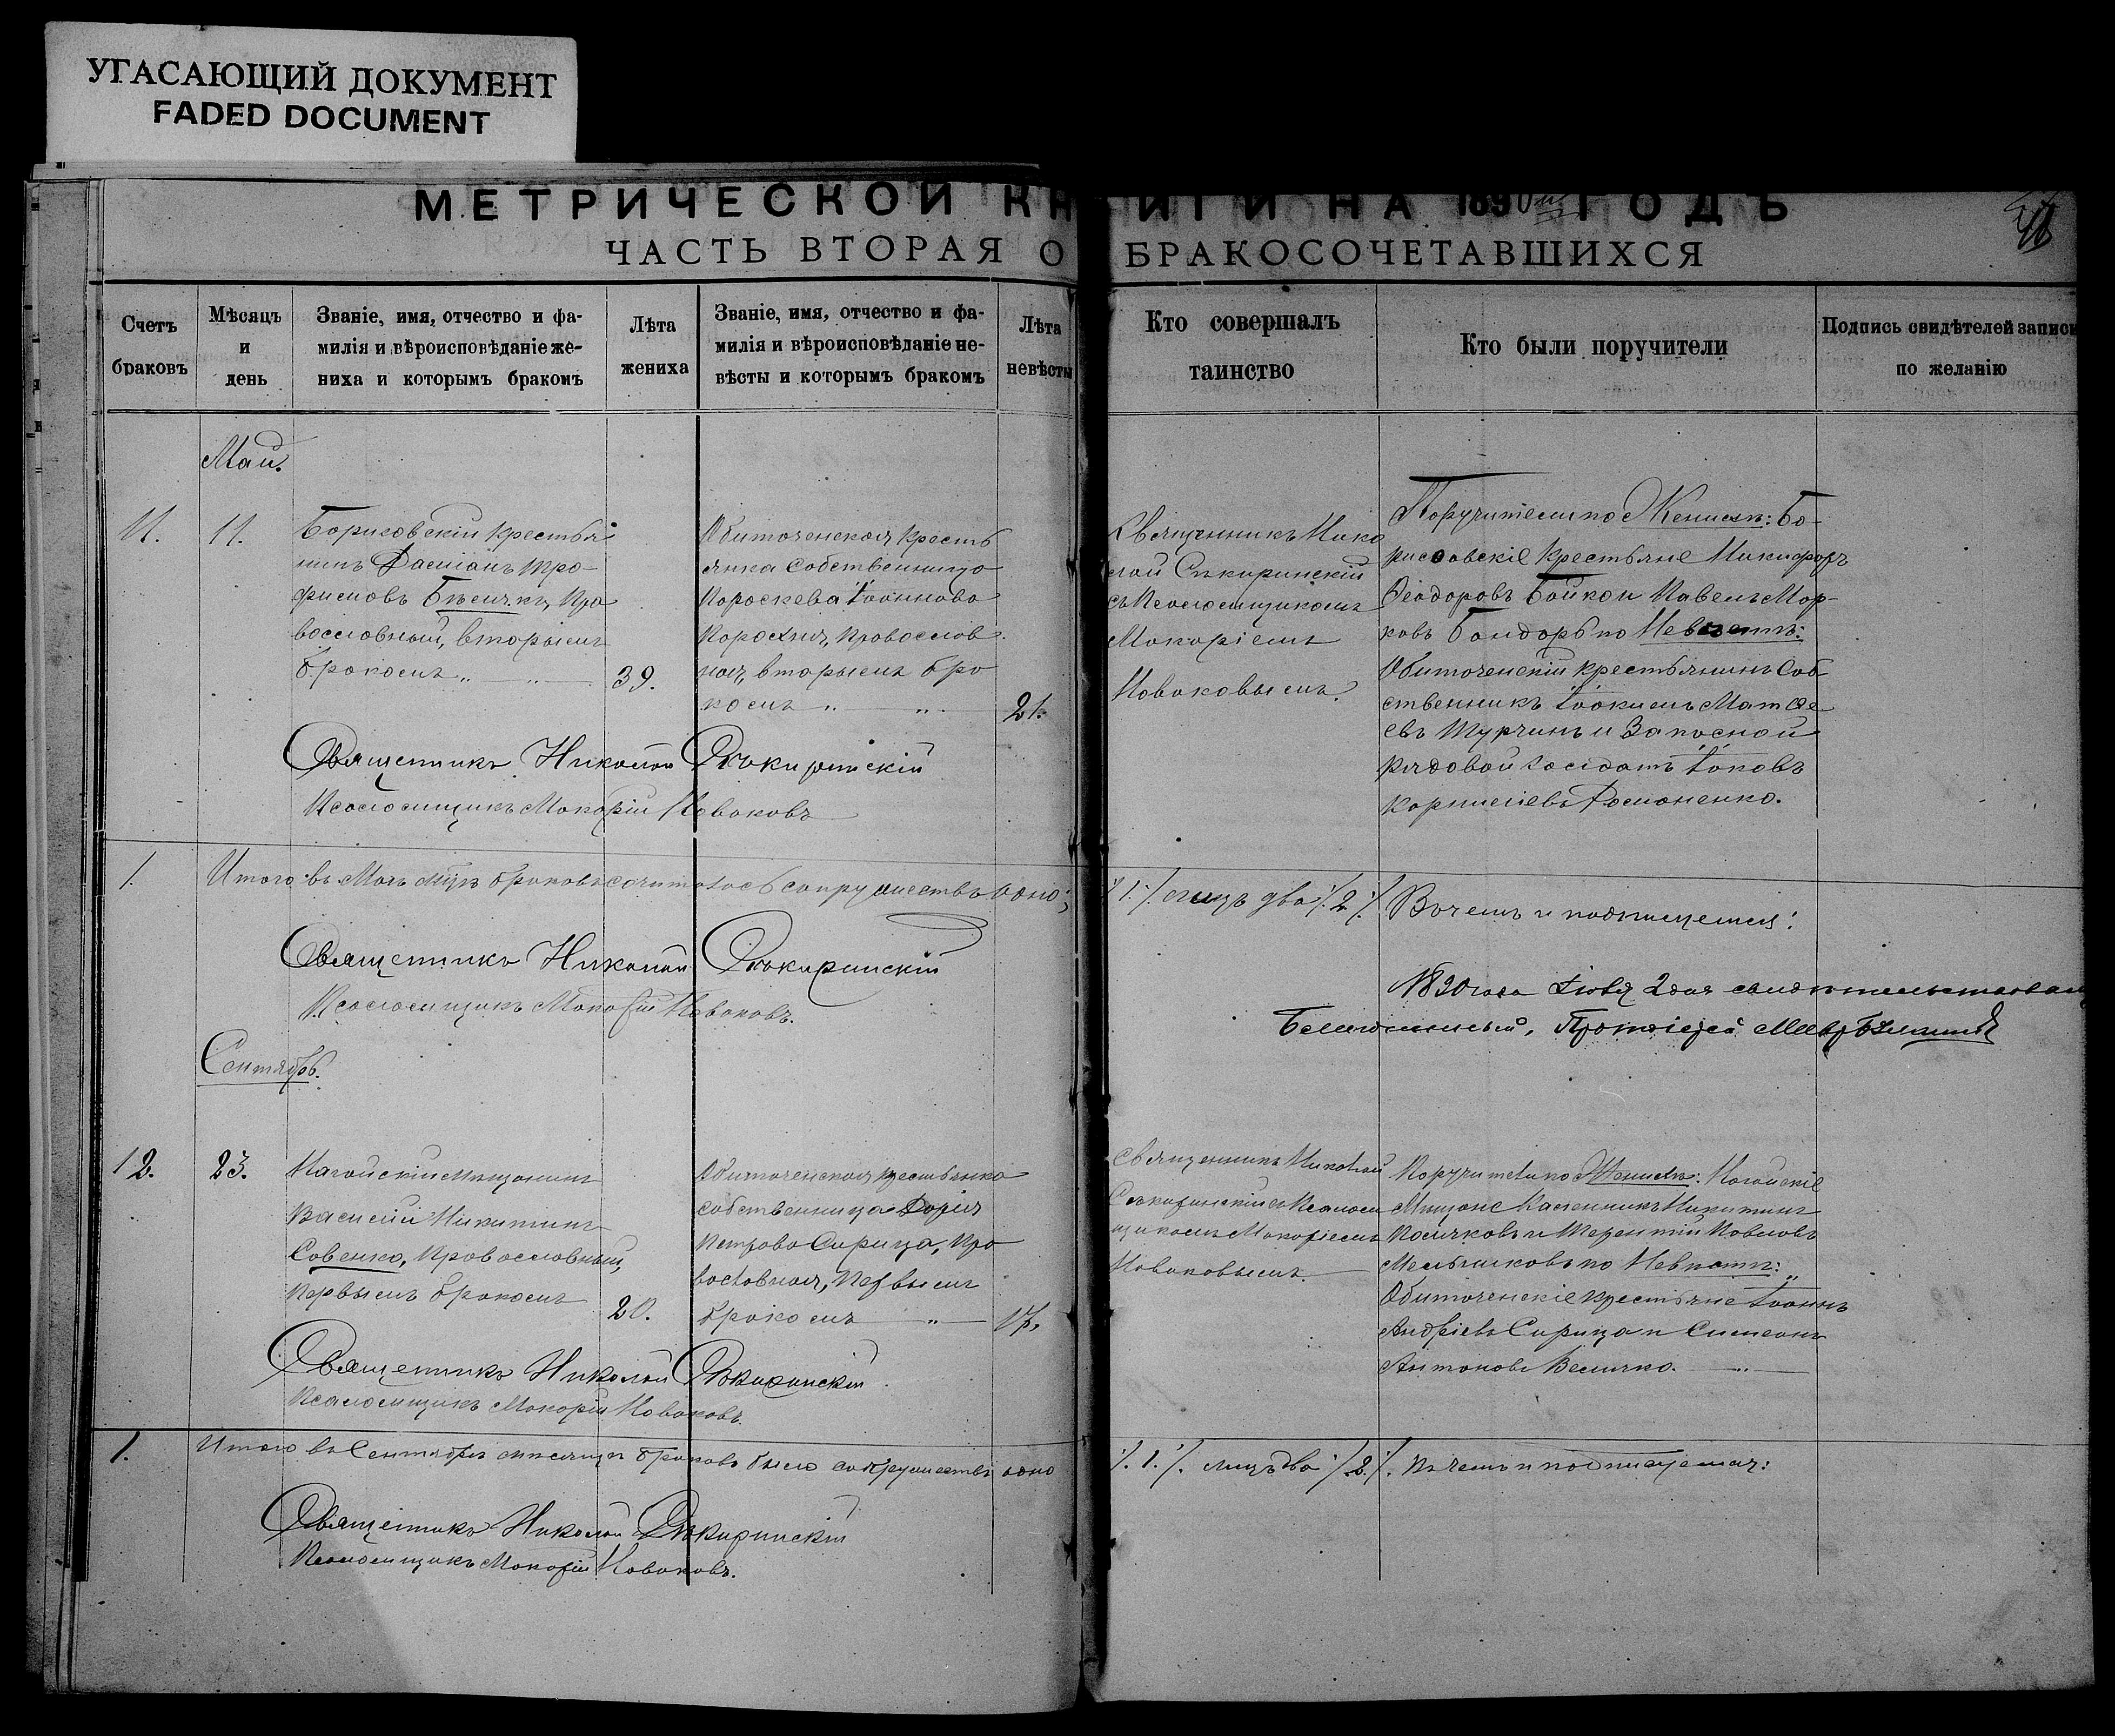 УГАСАЮЩИЙ ДОКУМЕНТ
FADED DOCUMENT
МЕТРИЧЕСКОЙ КНИГИ НА 1890й ГОДЪ
ЧАСТЬ ВТОРАЯ О БРАКОСОЧЕТАВШИХСЯ
Счетъ
браковъ
Мѣсяцъ
и
день
Званіе, имя, отчество и фа-
милія и вѣроисповѣданіе же-
ниха и которымъ бракомъ
Лѣта
жениха
Званіе, имя, отчество и фа-
милія и вѣроисповѣданіе не-
вѣсты и которымъ бракомъ
Лѣта
невѣсты
Кто совершалъ
таинство
Кто были поручители
Подпись свидѣтелей записи
по желанію
Май.
11.
11.
Борисовскій крестья
нинъ Дасіанъ Тро-
фимовъ, Пра
вославный, вторымъ
бракомъ „ — „ —
39.
Обиточенская кресть
янка собственница
Параскева Іоаннова
православ
ная, вторымъ бра
комъ „ — „
21.
Священникъ Нико
лай Сѣкиринскій
съ Псаломщикомъ
Макаріемъ
Новаковымъ.
Поручители по Женихѣ: Бо-
рисовскіе крестьяне Никифоръ
Ѳеодоровъ Бойко и Павелъ Мар-
ковъ Бондарь по Невѣстѣ:
Обиточенскій крестьянинъ соб
ственникъ Іоакимъ Матѳе
евъ Турчинъ и Запасной
рядовой солдатъ Іаковъ
Корниліевъ Романенко.
Священникъ Николай Сѣкиринскій
Псаломщикъ Макарій Новаковъ
1.
Итого въ Маѣ мцѣ браковъ супружествъ одно;
./.1./. лицъ два ./.2./. Въ чемъ и подпишемся:
Священникъ Николай Сѣкиринскій
Псаломщикъ Макарій Новаковъ.
1890 года Іюля 2 дня свидѣтельствовалъ
Благочинный, Протоіерей
Сентябрь.
12.
23.
Ногайскій Мѣщанинъ
Василій Никитинъ
Савенко, православный,
первымъ бракомъ
20.
Обиточенская крестьянка
собственница Дарія
Петрова Сирица, пра
вославная, первымъ
бракомъ — „ —
17.
Священникъ Николай
Сѣкиринскій съ Псалом
щикомъ Макаріемъ
Новаковымъ. —
Поручители по Женихѣ: Ногайскіе
Мѣщане Калинникъ Никитинъ
Поляковъ и Терентій Павловъ
Мельниковъ по Невѣстѣ: „
Обиточенскіе крестьяне Іоаннъ
Андреевъ Сирица и Симеонъ
Антоновъ Величко. — „ —
Священникъ Николай Сѣкиринскій
Псаломщикъ Макарій Новаковъ.
1.
Итого въ Сентябрѣ мѣсяцѣ браковъ было супружествъ одно
./.1./. лицъ два ./.2./. въ чемъ и подпишемся:
Священникъ Николай Сѣкиринскій
Псаломщикъ Макарій Новаковъ.